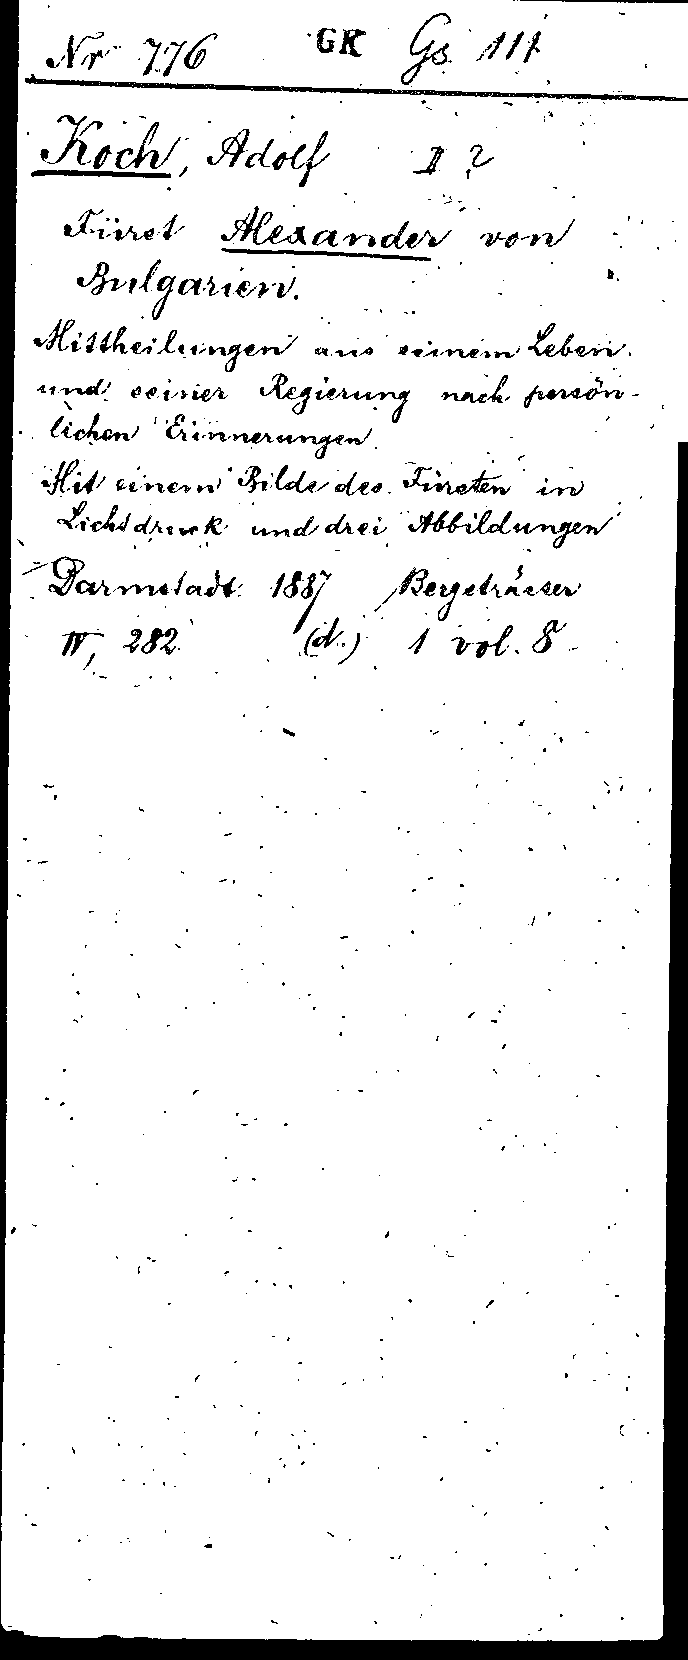 Nr 776 GK Gs 111
Koch, Adolf II ?
Fürst Alexander von
Bulgarien.
Mittheilungen aus seinem Leben
und seiner Regierung nach persön-
lichen Erinnerungen
Mit einem Bilde des Fürsten in
Lichtdruck und drei Abbildungen
Darmstadt 1887 Bergsträsser
IV, 282 (d.) 1 vol. 8